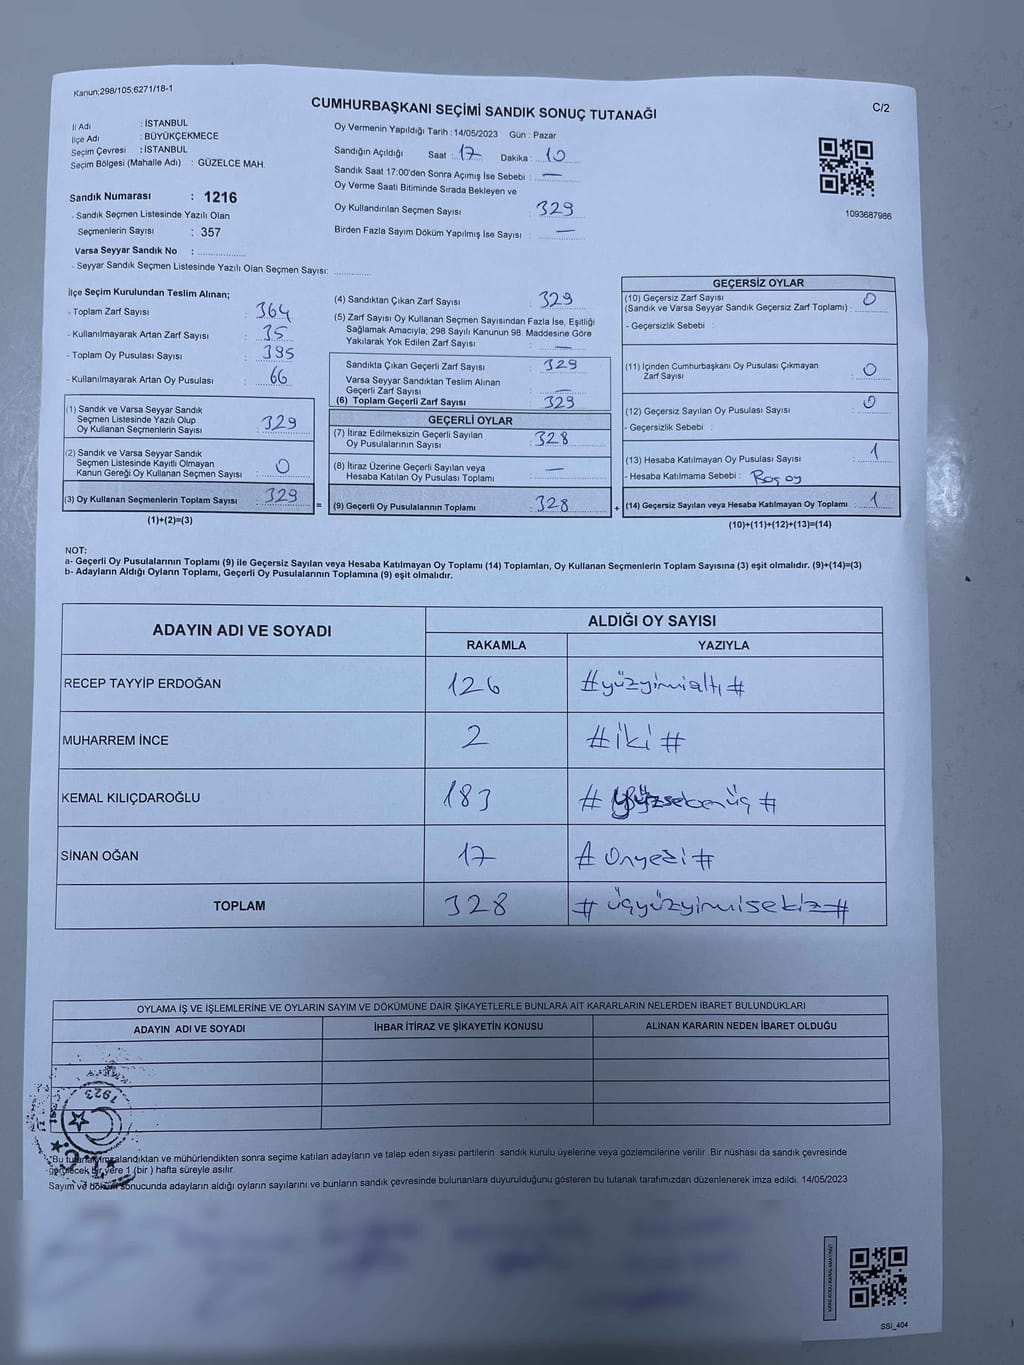 Kanun;298/105;6271/18-1
CUMHURBAŞKANI SEÇİMİ SANDIK SONUÇ TUTANAĞI
C/2
İl Adı : İSTANBUL
İlçe Adı : BÜYÜKÇEKMECE
Seçim Çevresi : İSTANBUL
Seçim Bölgesi (Mahalle Adı) : GÜZELCE MAH.
Sandık Numarası : 1216
- Sandık Seçmen Listesinde Yazılı Olan
Seçmenlerin Sayısı : 357
Varsa Seyyar Sandık No :
- Seyyar Sandık Seçmen Listesinde Yazılı Olan Seçmen Sayısı:
Oy Vermenin Yapıldığı Tarih : 14/05/2023 Gün : Pazar
Sandığın Açıldığı Saat : 17 Dakika : 10
Sandık Saat 17:00'den Sonra Açımış İse Sebebi : —
Oy Verme Saati Bitiminde Sırada Bekleyen ve
Oy Kullandırılan Seçmen Sayısı : 329
Birden Fazla Sayım Döküm Yapılmış İse Sayısı : —
1093687986
İlçe Seçim Kurulundan Teslim Alınan;
- Toplam Zarf Sayısı : 364
- Kullanılmayarak Artan Zarf Sayısı : 35
- Toplam Oy Pusulası Sayısı : 395
- Kullanılmayarak Artan Oy Pusulası : 66
(1) Sandık ve Varsa Seyyar Sandık
Seçmen Listesinde Yazılı Olup
Oy Kullanan Seçmenlerin Sayısı : 329
(2) Sandık ve Varsa Seyyar Sandık
Seçmen Listesinde Kayıtlı Olmayan
Kanun Gereği Oy Kullanan Seçmen Sayısı : 0
(3) Oy Kullanan Seçmenlerin Toplam Sayısı : 329
(1)+(2)=(3)
(4) Sandıktan Çıkan Zarf Sayısı : 329
(5) Zarf Sayısı Oy Kullanan Seçmen Sayısından Fazla İse, Eşitliği
Sağlamak Amacıyla; 298 Sayılı Kanunun 98. Maddesine Göre
Yakılarak Yok Edilen Zarf Sayısı : —
Sandıkta Çıkan Geçerli Zarf Sayısı : 329
Varsa Seyyar Sandıktan Teslim Alınan
Geçerli Zarf Sayısı : —
(6) Toplam Geçerli Zarf Sayısı : 329
GEÇERLİ OYLAR
(7) İtiraz Edilmeksizin Geçerli Sayılan
Oy Pusulalarının Sayısı : 328
(8) İtiraz Üzerine Geçerli Sayılan veya
Hesaba Katılan Oy Pusulası Toplamı : —
= (9) Geçerli Oy Pusulalarının Toplamı : 328
GEÇERSİZ OYLAR
(10) Geçersiz Zarf Sayısı
(Sandık ve Varsa Seyyar Sandık Geçersiz Zarf Toplamı) : 0
- Geçersizlik Sebebi :
(11) İçinden Cumhurbaşkanı Oy Pusulası Çıkmayan
Zarf Sayısı : 0
(12) Geçersiz Sayılan Oy Pusulası Sayısı : 0
- Geçersizlik Sebebi :
(13) Hesaba Katılmayan Oy Pusulası Sayısı : 1
- Hesaba Katılmama Sebebi : Boş oy
+ (14) Geçersiz Sayılan veya Hesaba Katılmayan Oy Toplamı : 1
(10)+(11)+(12)+(13)=(14)
NOT:
a- Geçerli Oy Pusulalarının Toplamı (9) ile Geçersiz Sayılan veya Hesaba Katılmayan Oy Toplamı (14) Toplamları, Oy Kullanan Seçmenlerin Toplam Sayısına (3) eşit olmalıdır. (9)+(14)=(3)
b- Adayların Aldığı Oyların Toplamı, Geçerli Oy Pusulalarının Toplamına (9) eşit olmalıdır.
ADAYIN ADI VE SOYADI
ALDIĞI OY SAYISI
RAKAMLA YAZIYLA
RECEP TAYYİP ERDOĞAN 126 #yüzyirmialtı#
MUHARREM İNCE 2 #iki#
KEMAL KILIÇDAROĞLU 183 #yüzseksenüç#
SİNAN OĞAN 17 #Onyedi#
TOPLAM 328 #üçyüzyirmisekiz#
OYLAMA İŞ VE İŞLEMLERİNE VE OYLARIN SAYIM VE DÖKÜMÜNE DAİR ŞİKAYETLERLE BUNLARA AİT KARARLARIN NELERDEN İBARET BULUNDUKLARI
ADAYIN ADI VE SOYADI İHBAR İTİRAZ VE ŞİKAYETİN KONUSU ALINAN KARARIN NEDEN İBARET OLDUĞU
1923
T.C.
"Bu tutanak imzalandıktan ve mühürlendikten sonra seçime katılan adayların ve talep eden siyasi partilerin sandık kurulu üyelerine veya gözlemcilerine verilir. Bir nüshası da sandık çevresinde
görülecek bir yere 1 (bir) hafta süreyle asılır.
Sayım ve döküm sonucunda adayların aldığı oyların sayılarını ve bunların sandık çevresinde bulunanlara duyurulduğunu gösteren bu tutanak tarafımızdan düzenlenerek imza edildi. 14/05/2023
KARE KODU KARALAMAYINIZ!
SSI_404